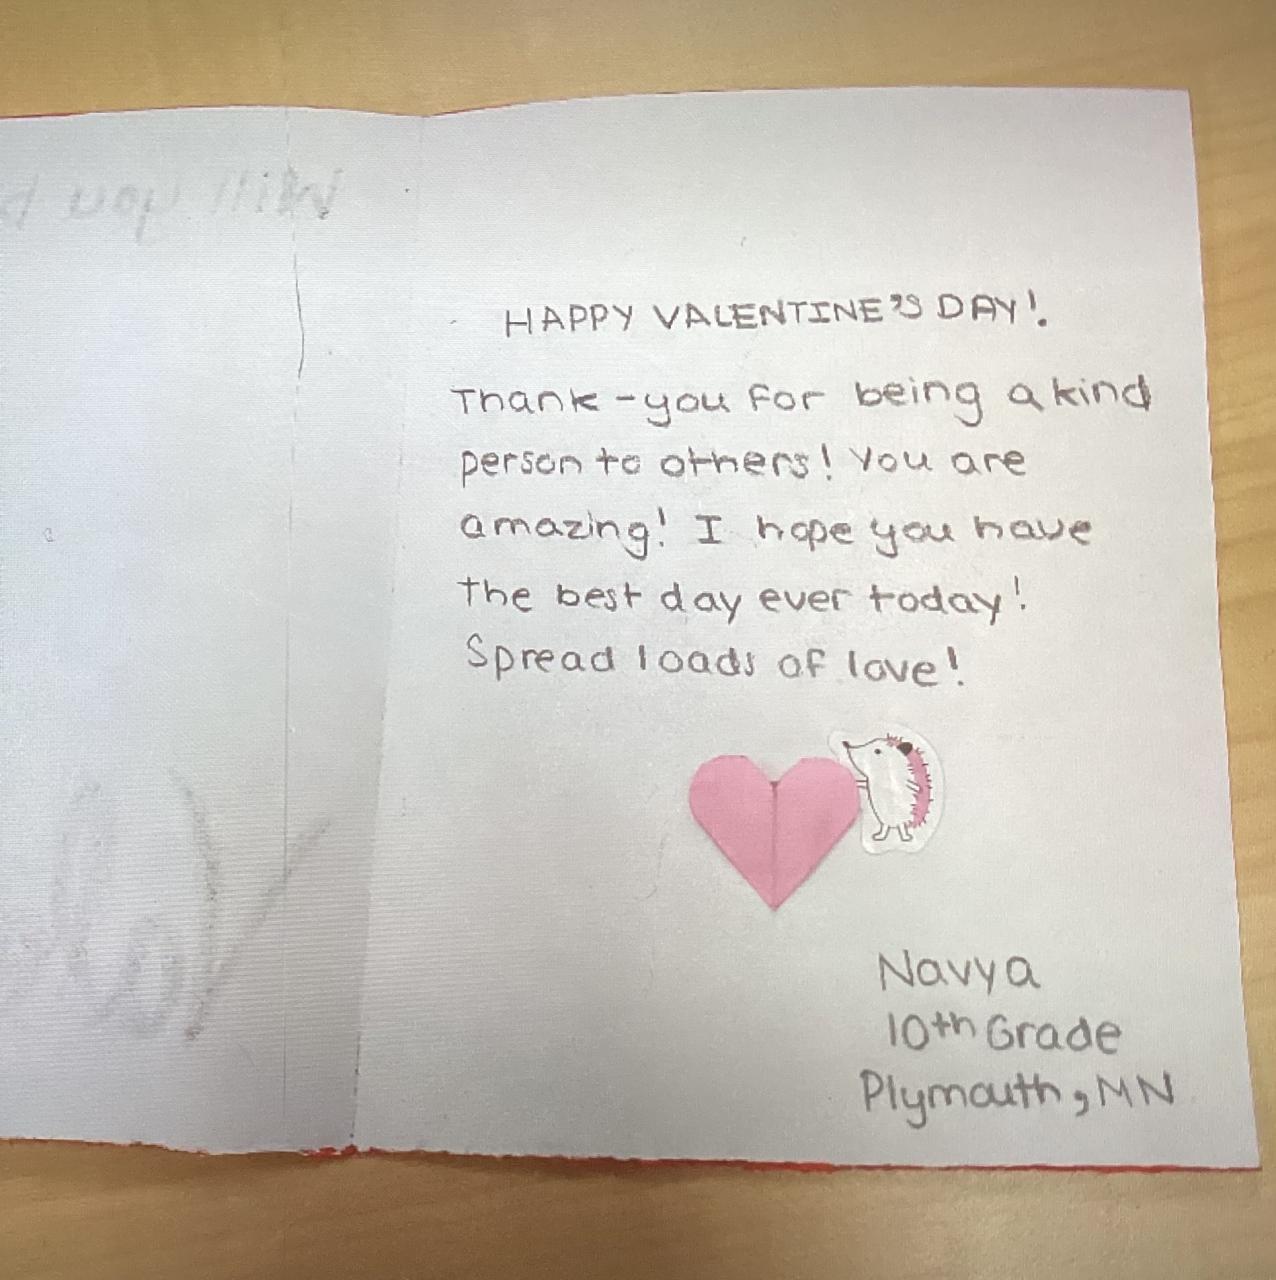 Will you
HAPPY VALENTINE'S DAY!
Thank-you for being a kind
person to others! You are
amazing! I hope you have
the best day ever today!
Spread loads of love!
Navya
10th Grade
Plymouth, MN